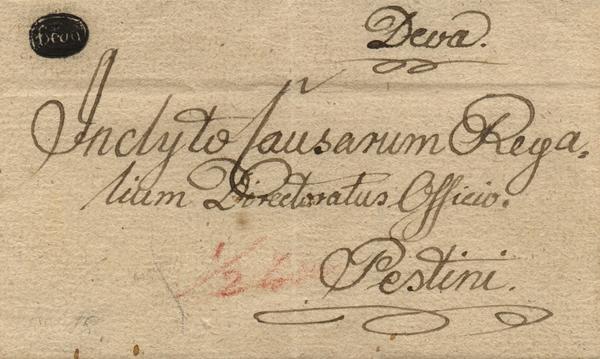 Deva
Deva.
Inclyto Causarum Rega,
lium Directoratus Officio.
1/2
Pestini.